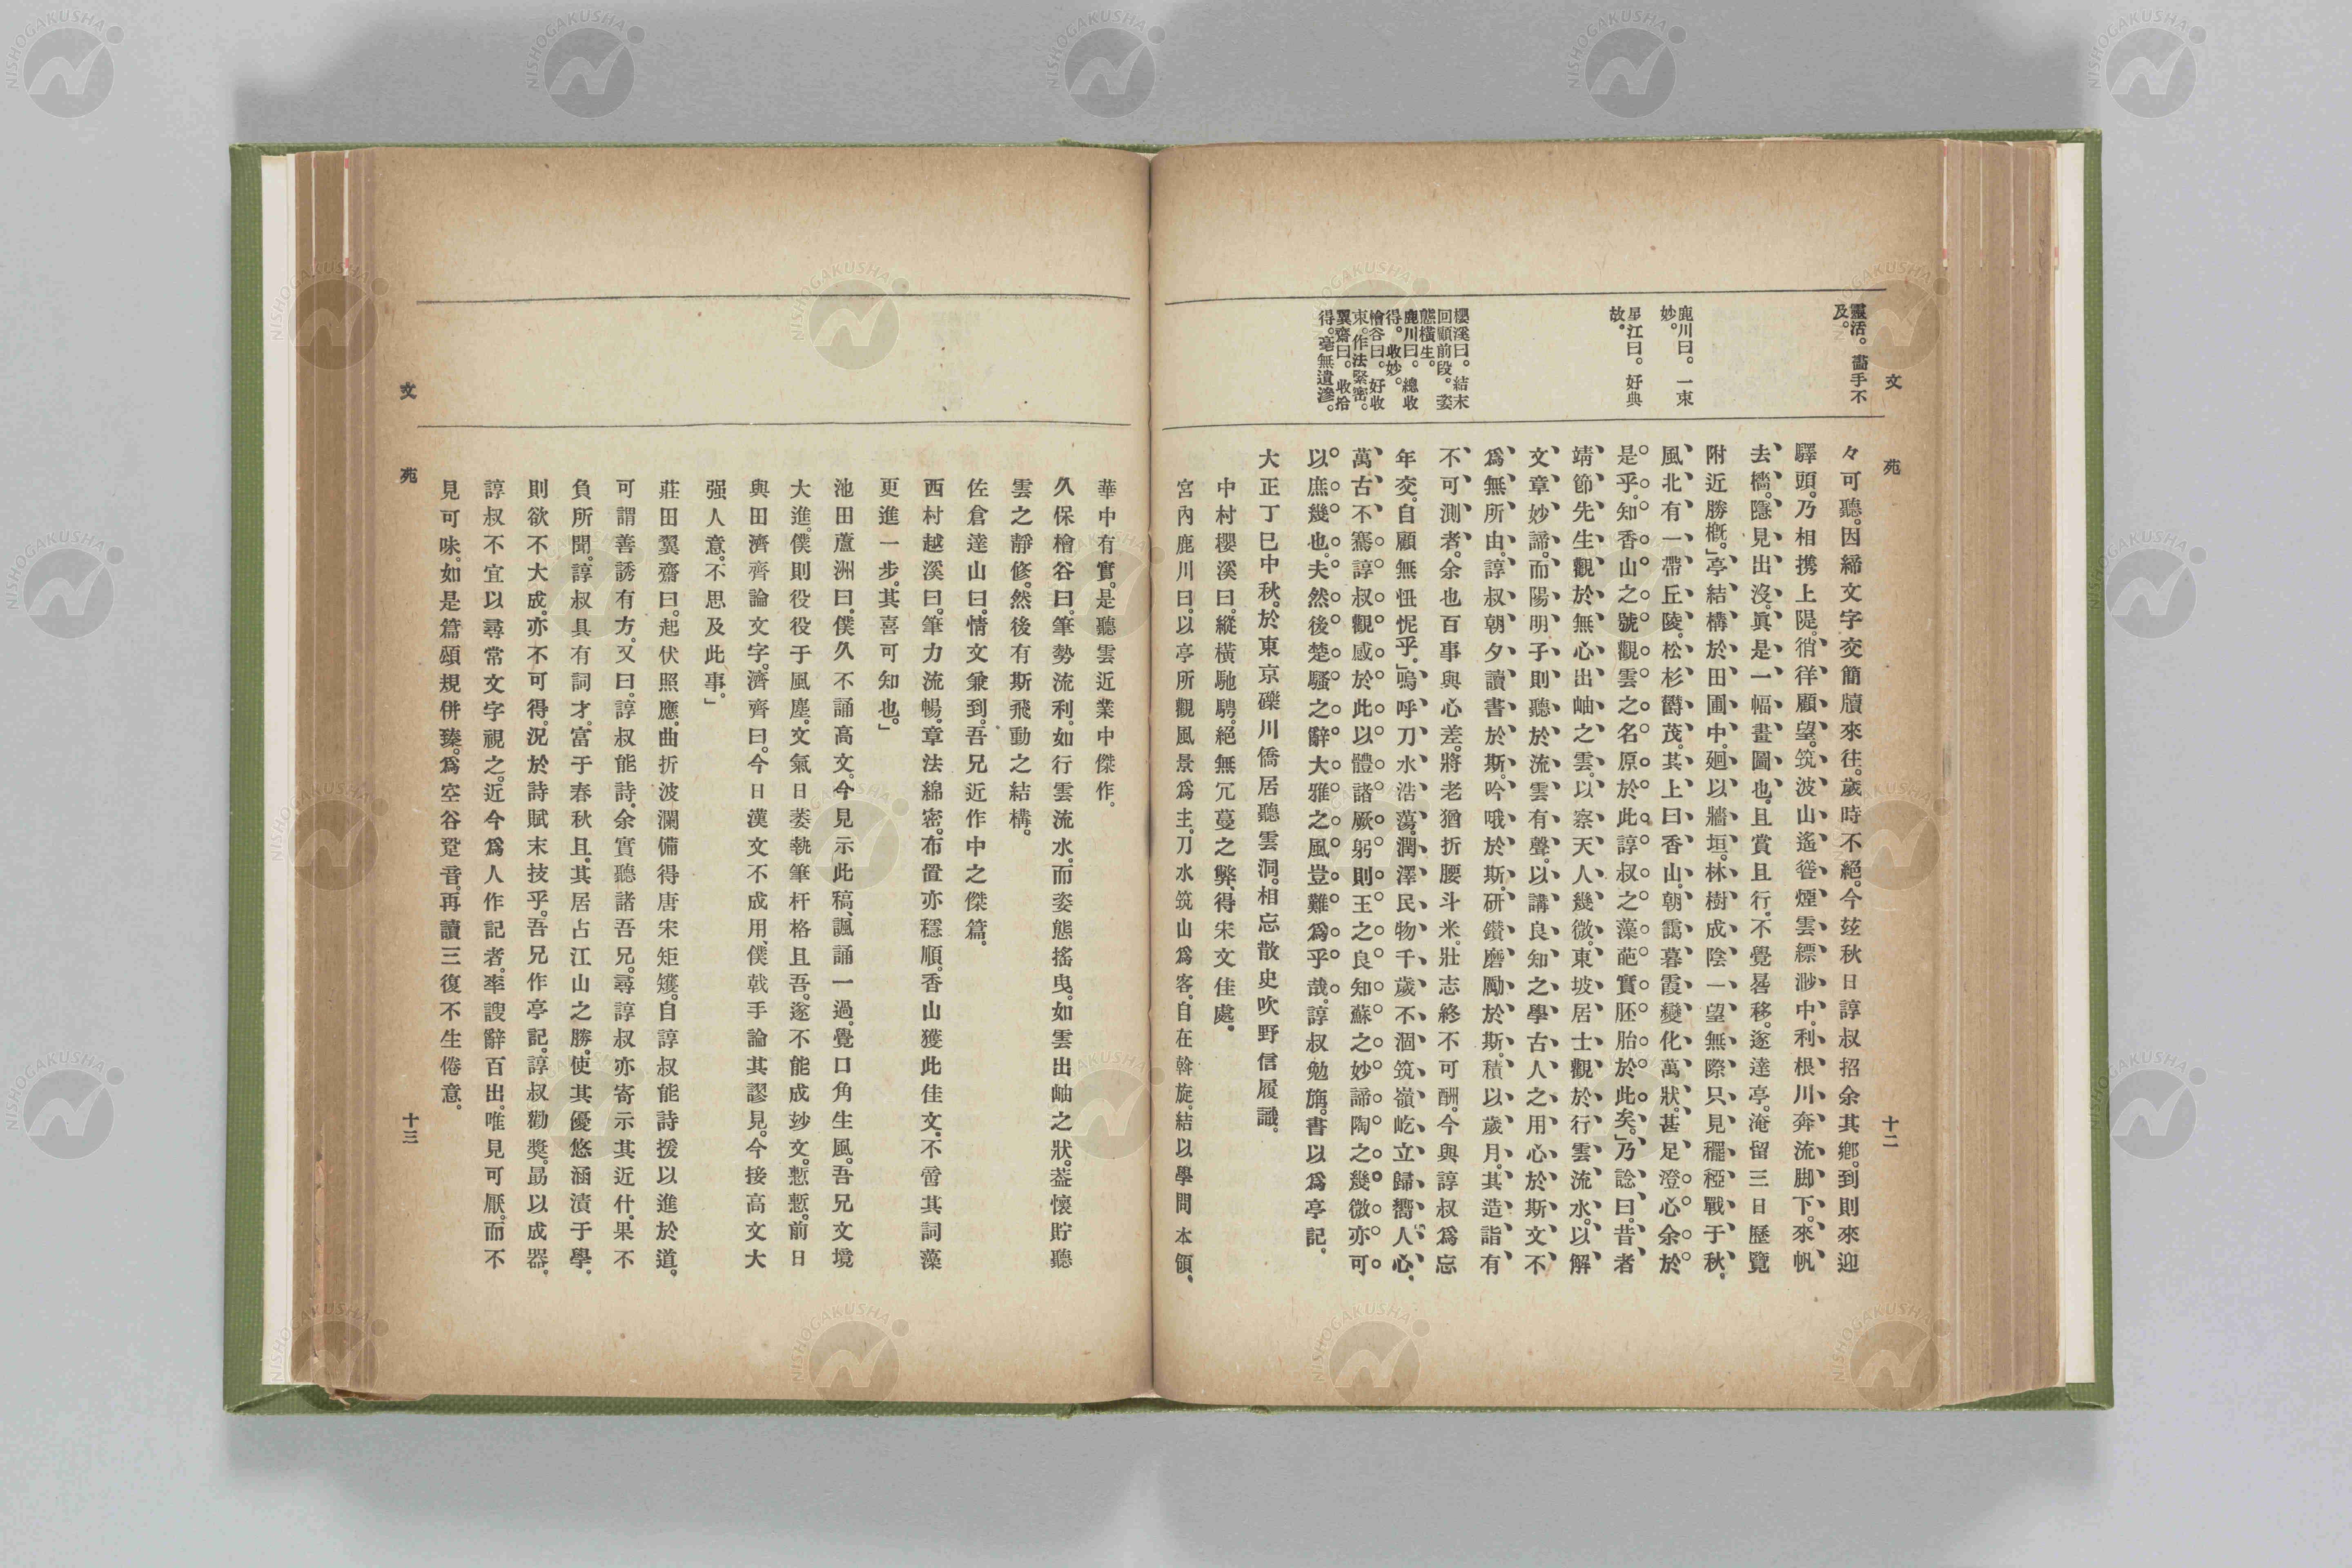 文苑
十二
靈活。畵手不
及。
鹿川曰。一束
妙。
星江曰。好典
故。
櫻溪曰。結末
回顧前段。姿
態橫生。
鹿川曰。總收
得。收妙。
檜谷曰。好收
束。作法緊密。
翼齋曰。收拾
得。毫無遺滲。
々可聽。因締文字交簡牘來往。歲時不絕。今玆秋日諄叔招余其鄕。到則來迎
驛頭。乃相携上隄。徜徉顧望。筑波山遙聳煙雲縹渺中。利根川奔流脚下。來帆
去檣。隱見出沒。眞是一幅畫圖也。且賞且行。不覺晷移。遂達亭。淹留三日歷覽
附近勝槪。」亭結構於田圃中。廻以牆垣。林樹成陰一望無際只見穲稏戰于秋
風、北有一帶丘陵。松杉欝茂。其上曰香山。朝靄暮霞變化萬狀。甚足澄心。余於
是乎。知香山之號觀雲之名原於此。諄叔之藻葩實胚胎於此矣。」乃諗曰。昔者
靖節先生觀於無心出岫之雲。以察天人幾微。東坡居士觀於行雲流水。以解
文章妙諦。而陽明子則聽於流雲有聲。以講良知之學古人之用心於斯文不
爲無所由。諄叔朝夕讀書於斯。吟哦於斯。研鑽磨勵於斯。積以歲月。其造詣有
不可測者。余也百事與心差。將老猶折腰斗米。壯志終不可酬。今與諄叔爲忘
年交。自顧無忸怩乎。」嗚呼刀水浩蕩。潤澤民物千歲不涸筑嶺屹立歸嚮人心、
萬古不騫諄叔觀感於此以體諸厥躬。則王之良知蘇之妙諦陶之幾微亦可
以庶幾也。夫然後楚騷之辭大雅之風豈難爲乎哉。諄叔勉旃。書以爲亭記。
大正丁巳中秋。於東京礫川僑居聽雲洞。相忘散史吹野信履識。
中村櫻溪曰。縱橫馳騁。絕無冗蔓之弊、得宋文佳處。
宮內鹿川曰。以亭所觀風景爲主。刀水筑山爲客。自在斡旋。結以學問本領、
華中有實。是聽雲近業中傑作。
久保檜谷曰。筆勢流利。如行雲流水。而姿態搖曳。如雲出岫之狀。葢懷貯聽
雲之靜修。然後有斯飛動之結構。
佐倉達山曰。情文兼到。吾兄近作中之傑篇。
西村越溪曰。筆力流暢。章法綿密。布置亦穩順。香山獲此佳文。不啻其詞藻
更進一步。其喜可知也。」
池田蘆洲曰。僕久不誦高文。今見示此稿、諷誦一過。覺口角生風。吾兄文境
大進。僕則役役于風塵。文氣日萎執筆杆格且吾。遂不能成玅文。慙慙。前日
與田濟齊論文字。濟齊曰。今日漢文不成用、僕戟手論其謬見。今接高文大
强人意。不思及此事。」
莊田翼齋曰。起伏照應。曲折波瀾備得唐宋矩矱。自諄叔能詩援以進於道。
可謂善誘有方。又曰。諄叔能詩。余實聽諸吾兄。尋諄叔亦寄示其近什。果不
負所聞。諄叔具有詞才。富于春秋且。其居占江山之勝。使其優悠涵漬于學。
則欲不大成。亦不可得。況於詩賦末技乎。吾兄作亭記。諄叔勸奬。勗以成器。
諄叔不宜以尋常文字視之。近今爲人作記者。率謏辭百出。唯見可厭。而不
見可味。如是篇頌規併臻。爲空谷跫音。再讀三復不生倦意。
文苑
十三
NISHOGAKUSHA